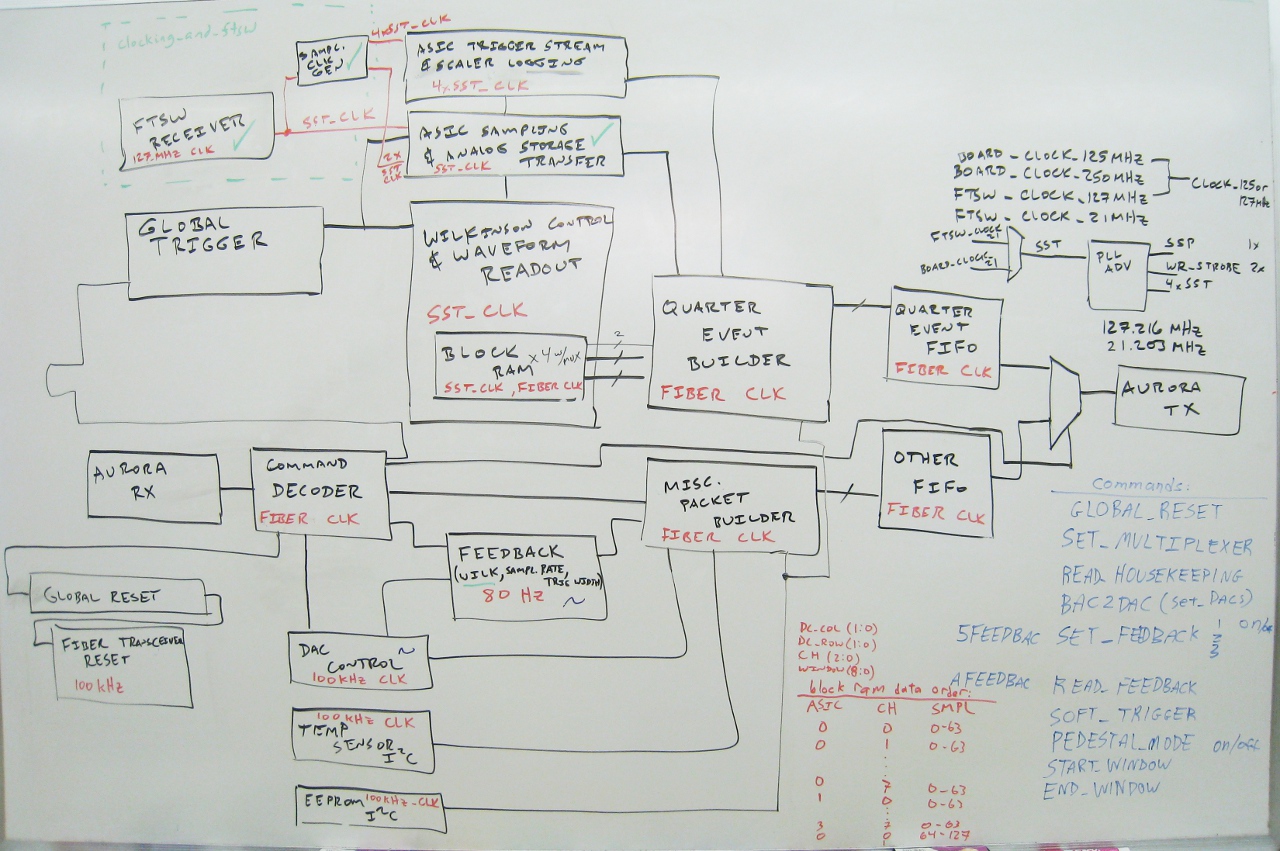 clocking_and_ftsw
SAMPL.
CLK
GEN
4xSST_CLK
ASIC TRIGGER STREAM
& SCALER LOGGING
4xSST_CLK
FTSW
RECEIVER
127 MHZ CLK
SST_CLK
2X
SST
CLK
ASIC SAMPLING
& ANALOG STORAGE
TRANSFER
SST_CLK
GLOBAL
TRIGGER
WILKINSON CONTROL
& WAVEFORM
READOUT
SST_CLK
BLOCK
RAM x4 w/mux
SST_CLK, FIBER CLK
2
QUARTER
EVENT
BUILDER
FIBER CLK
QUARTER
EVENT
FIFO
FIBER CLK
BOARD_CLOCK_125MHZ
BOARD_CLOCK_250MHZ
FTSW_CLOCK_127MHZ
FTSW_CLOCK_21MHZ
CLOCK_125 or
127MHz
FTSW_CLOCK
21
BOARD_CLOCK
21
SST
PLL
ADV
SSP 1x
WR_STROBE 2x
4xSST
127.216 MHZ
21.203 MHZ
AURORA
TX
AURORA
RX
COMMAND
DECODER
FIBER CLK
MISC.
PACKET
BUILDER
FIBER CLK
OTHER
FIFO
FIBER CLK
FEEDBACK
(WILK, SAMPL. RATE,
TRIG WIDTH)
80 HZ ~
GLOBAL RESET
FIBER TRANSCEIVER
RESET
100 kHz
DAC ~
CONTROL
100kHz CLK
100 kHz CLK
TEMP
SENSOR
I²C
EEPROM 100kHz-CLK
I²C
DC_COL (1:0)
DC_ROW (1:0)
CH (2:0)
WINDOW (8:0)
block ram data order:
ASIC CH SMPL
0 0 0-63
0 1 0-63
0 7 0-63
1 0 0-63
3 7 0-63
0 0 64-127
Commands:
GLOBAL_RESET
SET_MULTIPLEXER
READ_HOUSEKEEPING
BAC2DAC (set_DACs)
5FEEDBAC SET_FEDBACK 1 on/off
2
3
AFEEDBAC READ_FEEDBACK
SOFT_TRIGGER
PEDESTAL_MODE on/off
START_WINDOW
END_WINDOW